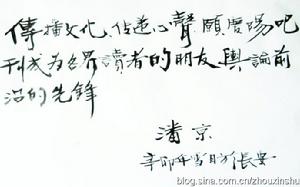 傳播文化、传递心聲 願廣場吧
刊成为各界讀者的朋友輿論前
沿的先锋
潘京
辛卯年
blog.sina.com.cn/zhouxinshu